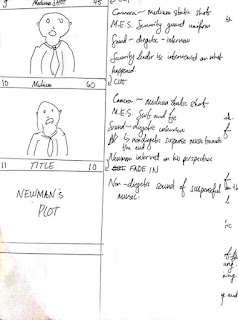 9 Medium Shot 45
CUT
Camera - Medium static shots
M.E.S. Security guard uniform
Sound - diegetic - interview
Security leader is interviewed on what
happened
CUT
10 Medium 60
Camera - Medium static shots
M.E.S. Suits and tie
Sound - diegetic interview
nondiegetic suspense music towards
the end
Newman interview on his perspective
FADE IN
11 TITLE 10
NEWMAN'S
PLOT
Non-diegetic sound of suspenseful
music.